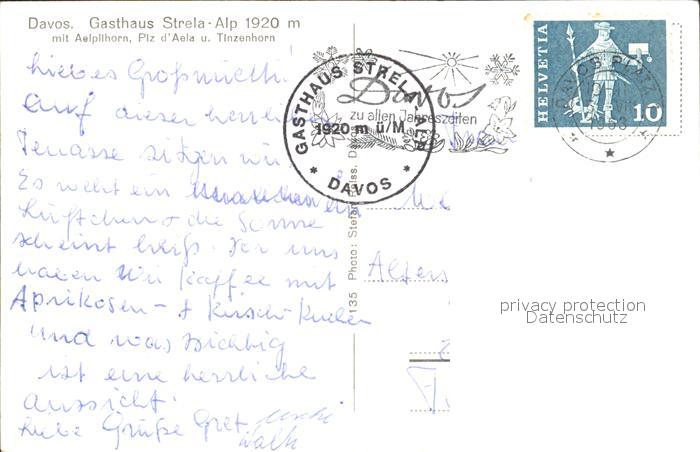 Davos. Gasthaus Strela-Alp 1920 m
mit Aelplihorn, Piz d'Aela u. Tinzenhorn
liebes Großmuetti!
Auf dieser herrlichen
Terrasse sitzen wir
Es weht ein
Lüftchen + die Sonne
scheint heiß. Vor uns
haben wir Kaffee mit
Aprikosen- + Kirsch-Kuchen
und was wichtig
ist eine herrliche
Aussicht!
Liebe Grüße Gret
GASTHAUS STRELA ALP
1920 m ü/M.
* DAVOS *
Davos
zu allen Jahreszeiten
HELVETIA
10
DAVOS PLATZ
135 Photo: Stefan
privacy protection
Datenschutz